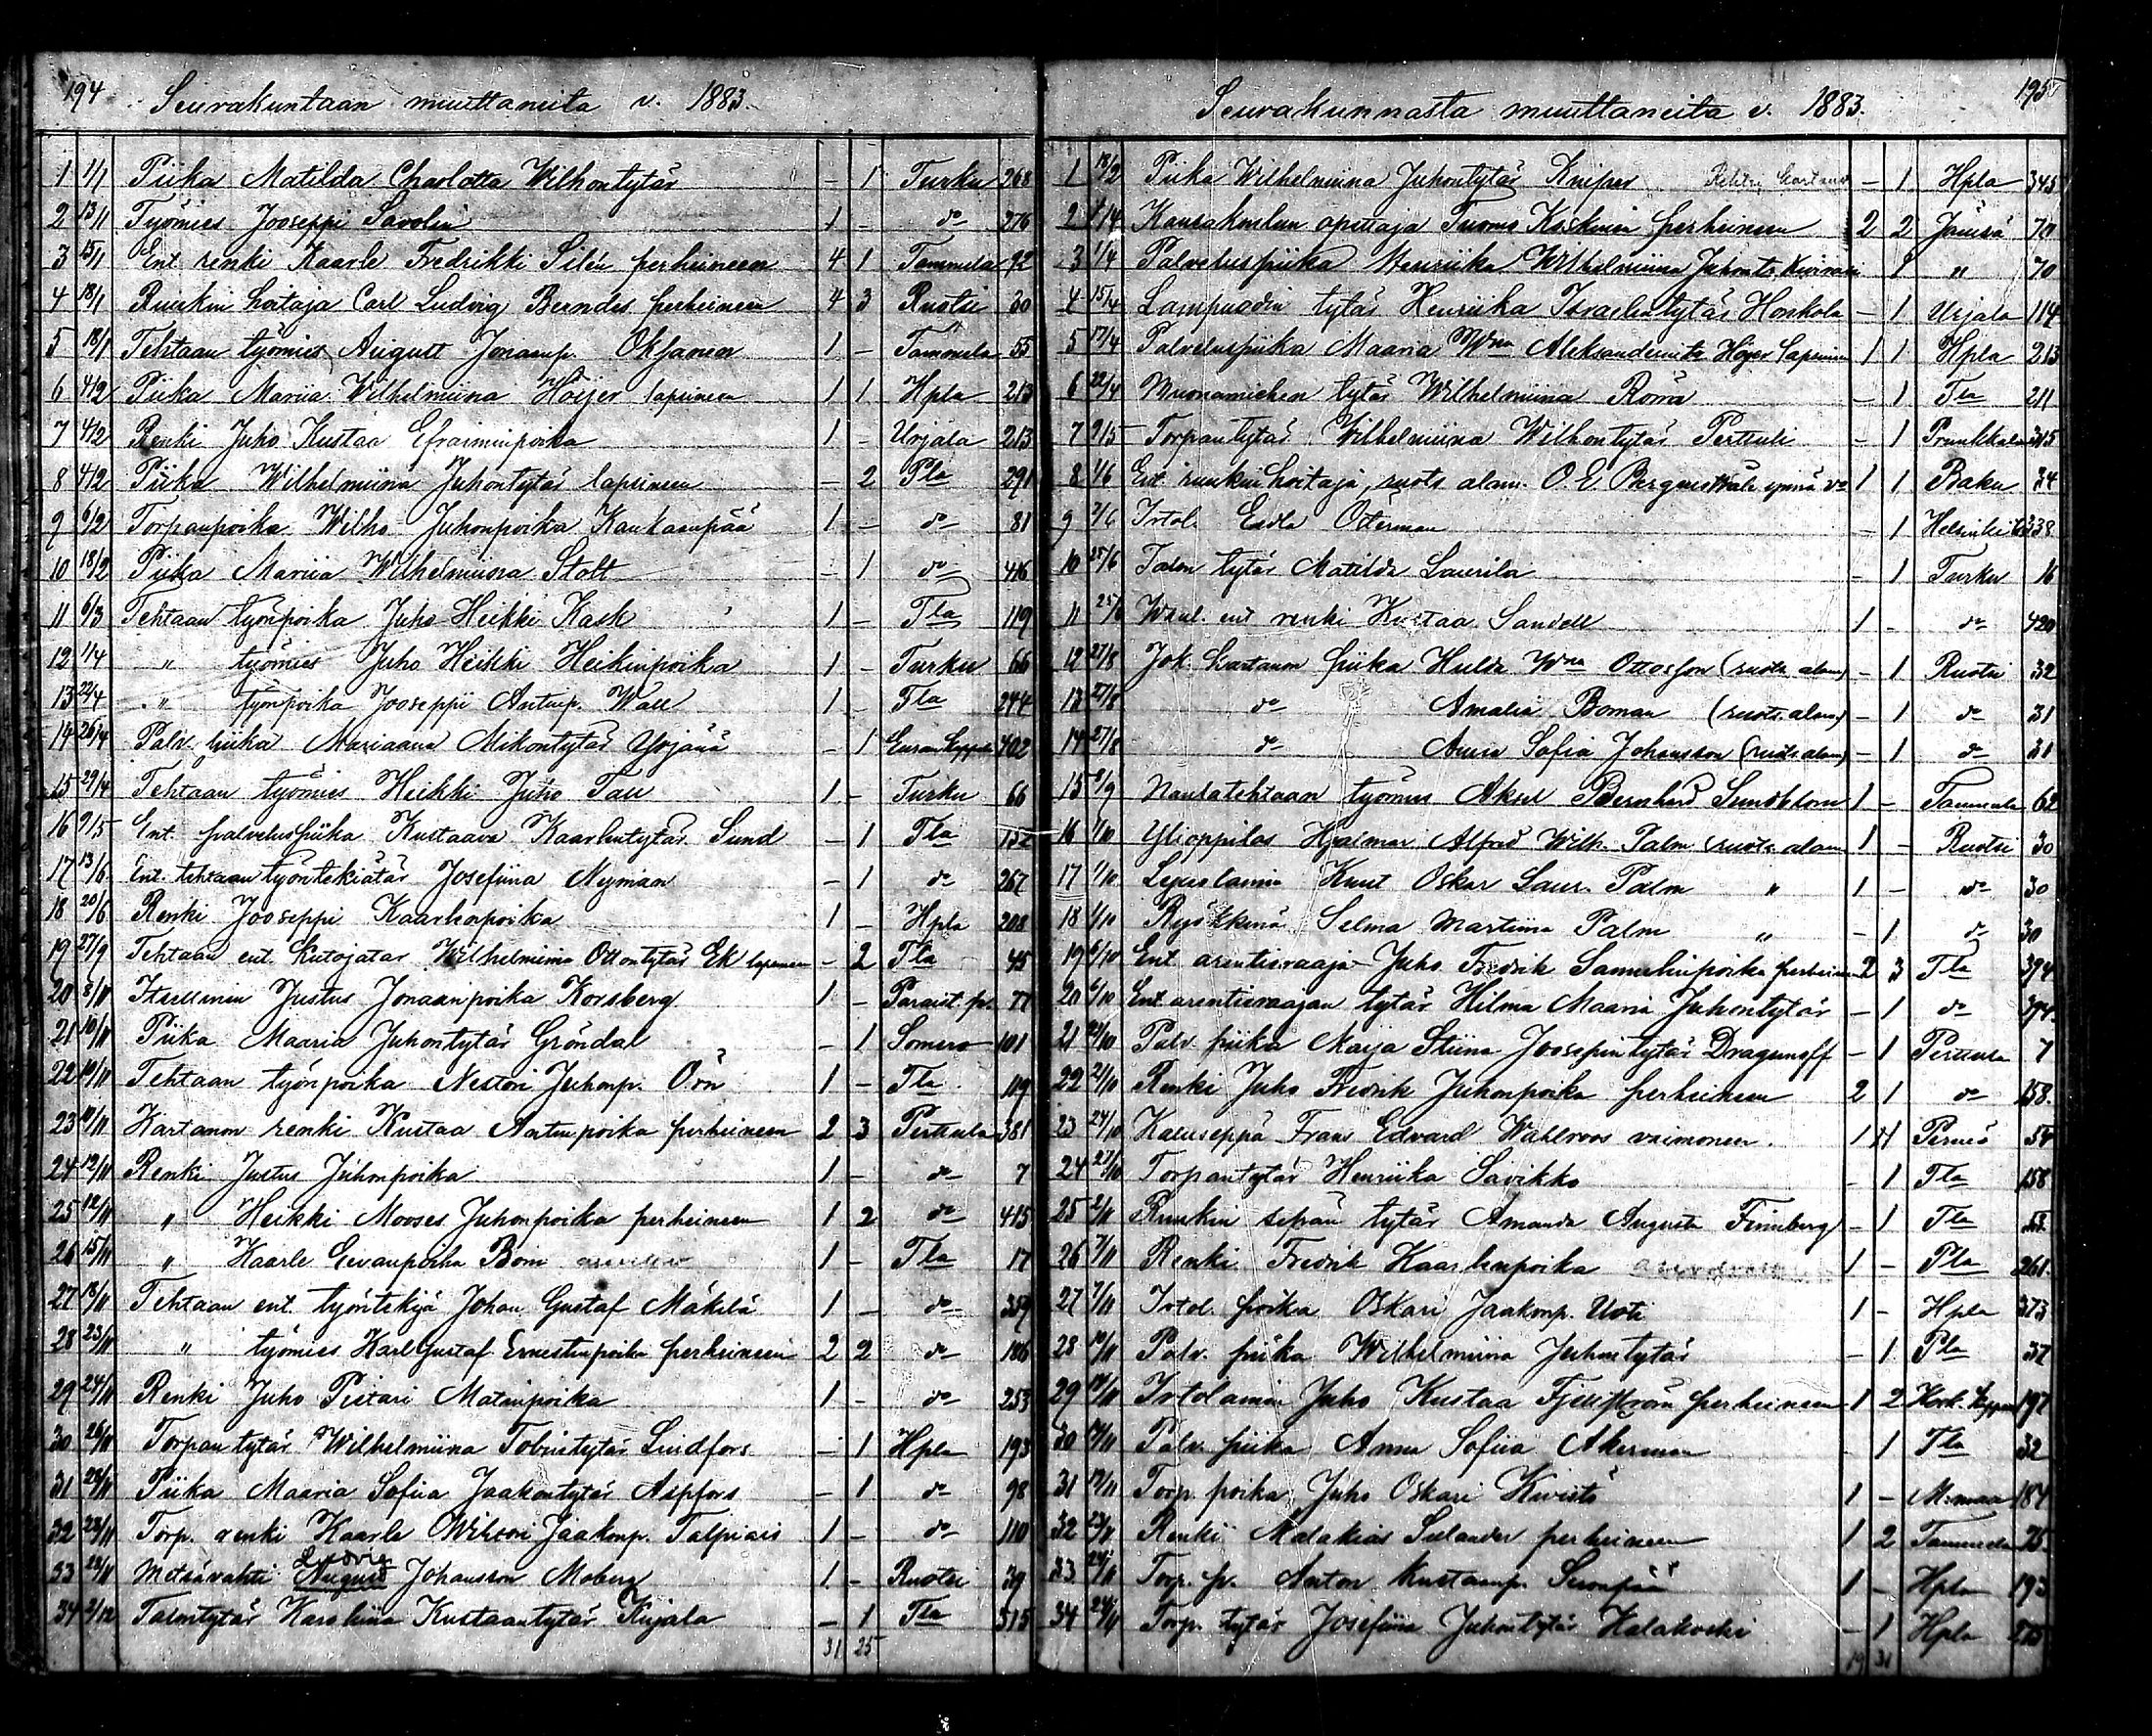 194 Seurakuntaan muuttaneita v. 1883.
1 1/1 Piika Matilda Charlotta Wilhontytär – 1 Turku 268
2 13/1 Työmies Jooseppi Savolin 1 – do 276
3 15/1 Ent. renki Kaarle Fredrikki Silén perheineen 4 1 Tammela 92
4 18/1 Ruukin hoitaja Carl Ludvig Berndes perheineen 4 3 Ruotsi 30
5 18/1 Tehtaan työmies August Jonaanp. Oksanen 1 – Tammela 55
6 4/2 Piika Mariia Wilhelmiina Höijer lapsineen 1 1 Hpla 213
7 4/2 Renki Juho Kustaa Efraiminpoika 1 – Urjala 213
8 4/2 Piika Wilhelmiina Juhontytär lapsineen – 2 Pla 291
9 6/2 Torpanpoika Wilho Juhonpoika Kankaanpää 1 – do 81
10 18/2 Piika Mariia Wilhelmiina Stolt – 1 do 416
11 6/3 Tehtaan työnpoika Juho Heikki Kask 1 – Tla 119
12 1/4 " työmies Juho Heikki Heikinpoika 1 – Turku 66
13 22/4 " työnpoika Jooseppi Antinp. Wall 1 – Tla 244
14 26/4 Palv. piika Mariaana Mikontytär Yrjänä – 1 402
15 29/4 Tehtaan työmies Heikki Juho Tau 1 – Turku 66
16 9/5 Ent. palveluspiika Kustaava Kaarlentytär Sund – 1 Tla 132
17 13/6 Ent. tehtaan työntekiätär Josefiina Nyman – 1 do 267
18 20/6 Renki Jooseppi Kaarlonpoika 1 – Hpla 208
19 27/9 Tehtaan ent. kutojatar Wilhelmiina Ottontytär Ek lapsineen – 2 Tla 45
20 8/10 Itsellinen Justus Jonaanpoika Korsberg 1 – 77
21 10/11 Piika Maaria Juhontytär Gröndal – 1 Somero 101
22 10/11 Tehtaan työnpoika Nestori Juhonp. Öön 1 – Tla 119
23 11/11 Kartanon renki Kustaa Antinpoika perheineen 2 3 Perttula 381
24 12/11 Renki Justus Juhonpoika 1 – do 7
25 12/11 " Heikki Mooses Juhonpoika perheineen 1 2 do 415
26 15/11 " Kaarle Eevanpoika Bom 1 – Tla 17
27 18/11 Tehtaan ent. työntekijä Johan Gustaf Mäkelä 1 – do 359
28 23/11 " työmies Karl Gustaf Ernestinpoika perheineen 2 2 do 186
29 24/11 Renki Juho Pietari Matinpoika 1 – do 253
30 26/11 Torpan tytär Wilhelmiina Tobiintytär Lindfors – 1 Hpla 193
31 28/11 Piika Maaria Sofiia Jaakontytär Aspfors – 1 do 98
32 28/11 Torp. renki Kaarle Wihtori Jaakonp. 1 – do 110
33 28/11 Metsävahti August Ludvig Johansson Moberg 1 – Ruotsi 39
34 2/12 Talontytär Karoliina Kustaantytär Kujala – 1 Tla 315
31 25
195 Seurakunnasta muuttaneita v. 1883.
1 18/2 Piika Wilhelmiina Juhontytär Kniper – 1 Hpla 345
2 1/4 Kansakoulun opettaja Tuomo Koskinen perheineen 2 2 70
3 1/4 Palveluspiika Henriika Wilhelmiina Juhont. 1 " 70
4 15/4 Lampuodin tytär Henriika Israelintytär Honkola – 1 Urjala 114
5 17/4 Palveluspiika Maaria Wna Höijer lapsineen 1 1 Hpla 213
6 22/4 Muonamiehen tytär Wilhelmiina – 1 Tla 211
7 9/5 Torpantytär Wilhelmiina Wilhontytär Perttuli – 1 315
8 1/6 Ent. ruukin hoitaja, ruots. alam. O. E. 1 1 Baku 34
9 2/6 Itsol. Edla Österman – 1 Helsinki 338
10 25/6 Talon tytär Matilda Laurila – 1 Turku 16
11 25/6 ent renki Kustaa Sandell 1 – do 420
12 27/8 Jok. kartanon piika Hulda Wna Ottosson (ruots. alam.) – 1 Ruotsi 32
13 27/8 do Amalia Boman (ruots. alam.) – 1 do 31
14 27/8 do Anna Sofia Johansson (ruots. alam.) – 1 do 31
15 8/9 Naulatehtaan työmies Aksel Bernhard Sundblom 1 – Tammela 62
16 1/10 Ylioppilas Hjalmar Alfred Wilh. Palm (ruots. alam. 1 – Ruotsi 30
17 1/10 Knut Oskar Laur. Palm " 1 – do 30
18 1/10 Selma Martiina Palm " – 1 do 30
19 6/10 Ent. arentiraaja Juho Fredrik Samulinpoika perheineen 2 3 Tla 394
20 6/10 Ent. arentiraajan tytär Hilma Maaria Juhontytär – 1 do 394
21 21/10 Palv. piika Maija Stiina Joosepintytär Dragunoff – 1 Perttula 7
22 21/10 Renki Juho Fredrik Juhonpoika perheineen 2 1 do 158
23 24/10 Kaluseppä Frans Edvard Wahlroos vaimoneen. 1 1 Perniö 54
24 27/10 Torpantytär Henriika Savikko – 1 Tla 158
25 2/11 Ruukin sepän tytär Amanda Augusta Finnberg – 1 Tla
26 7/11 Renki Fredrik Kaarlenpoika 1 – Pla 261
27 7/11 Itsol. poika Oskari Jaakonp. Uoti 1 – Hpla 373
28 10/11 Palv. piika Wilhelmiina Juhontytär – 1 Pla 37
29 14/11 Itsolainen Juho Kustaa Fjellström perheineen 1 2 197
30 14/11 Palv. piika Anna Sofiia Åkerman – 1 Tla 32
31 19/11 Torp. poika Juho Oskari Kivistö 1 – M:maa 184
32 23/11 Renki Malakias Selander perheineen 1 2 Tammela 75
33 24/11 Torp. p. Anton Kustaanp. 1 – Hpla 193
34 24/11 Torp. tytär Josefiina Juhontytär Kalakoski – 1 Hpla
19 31